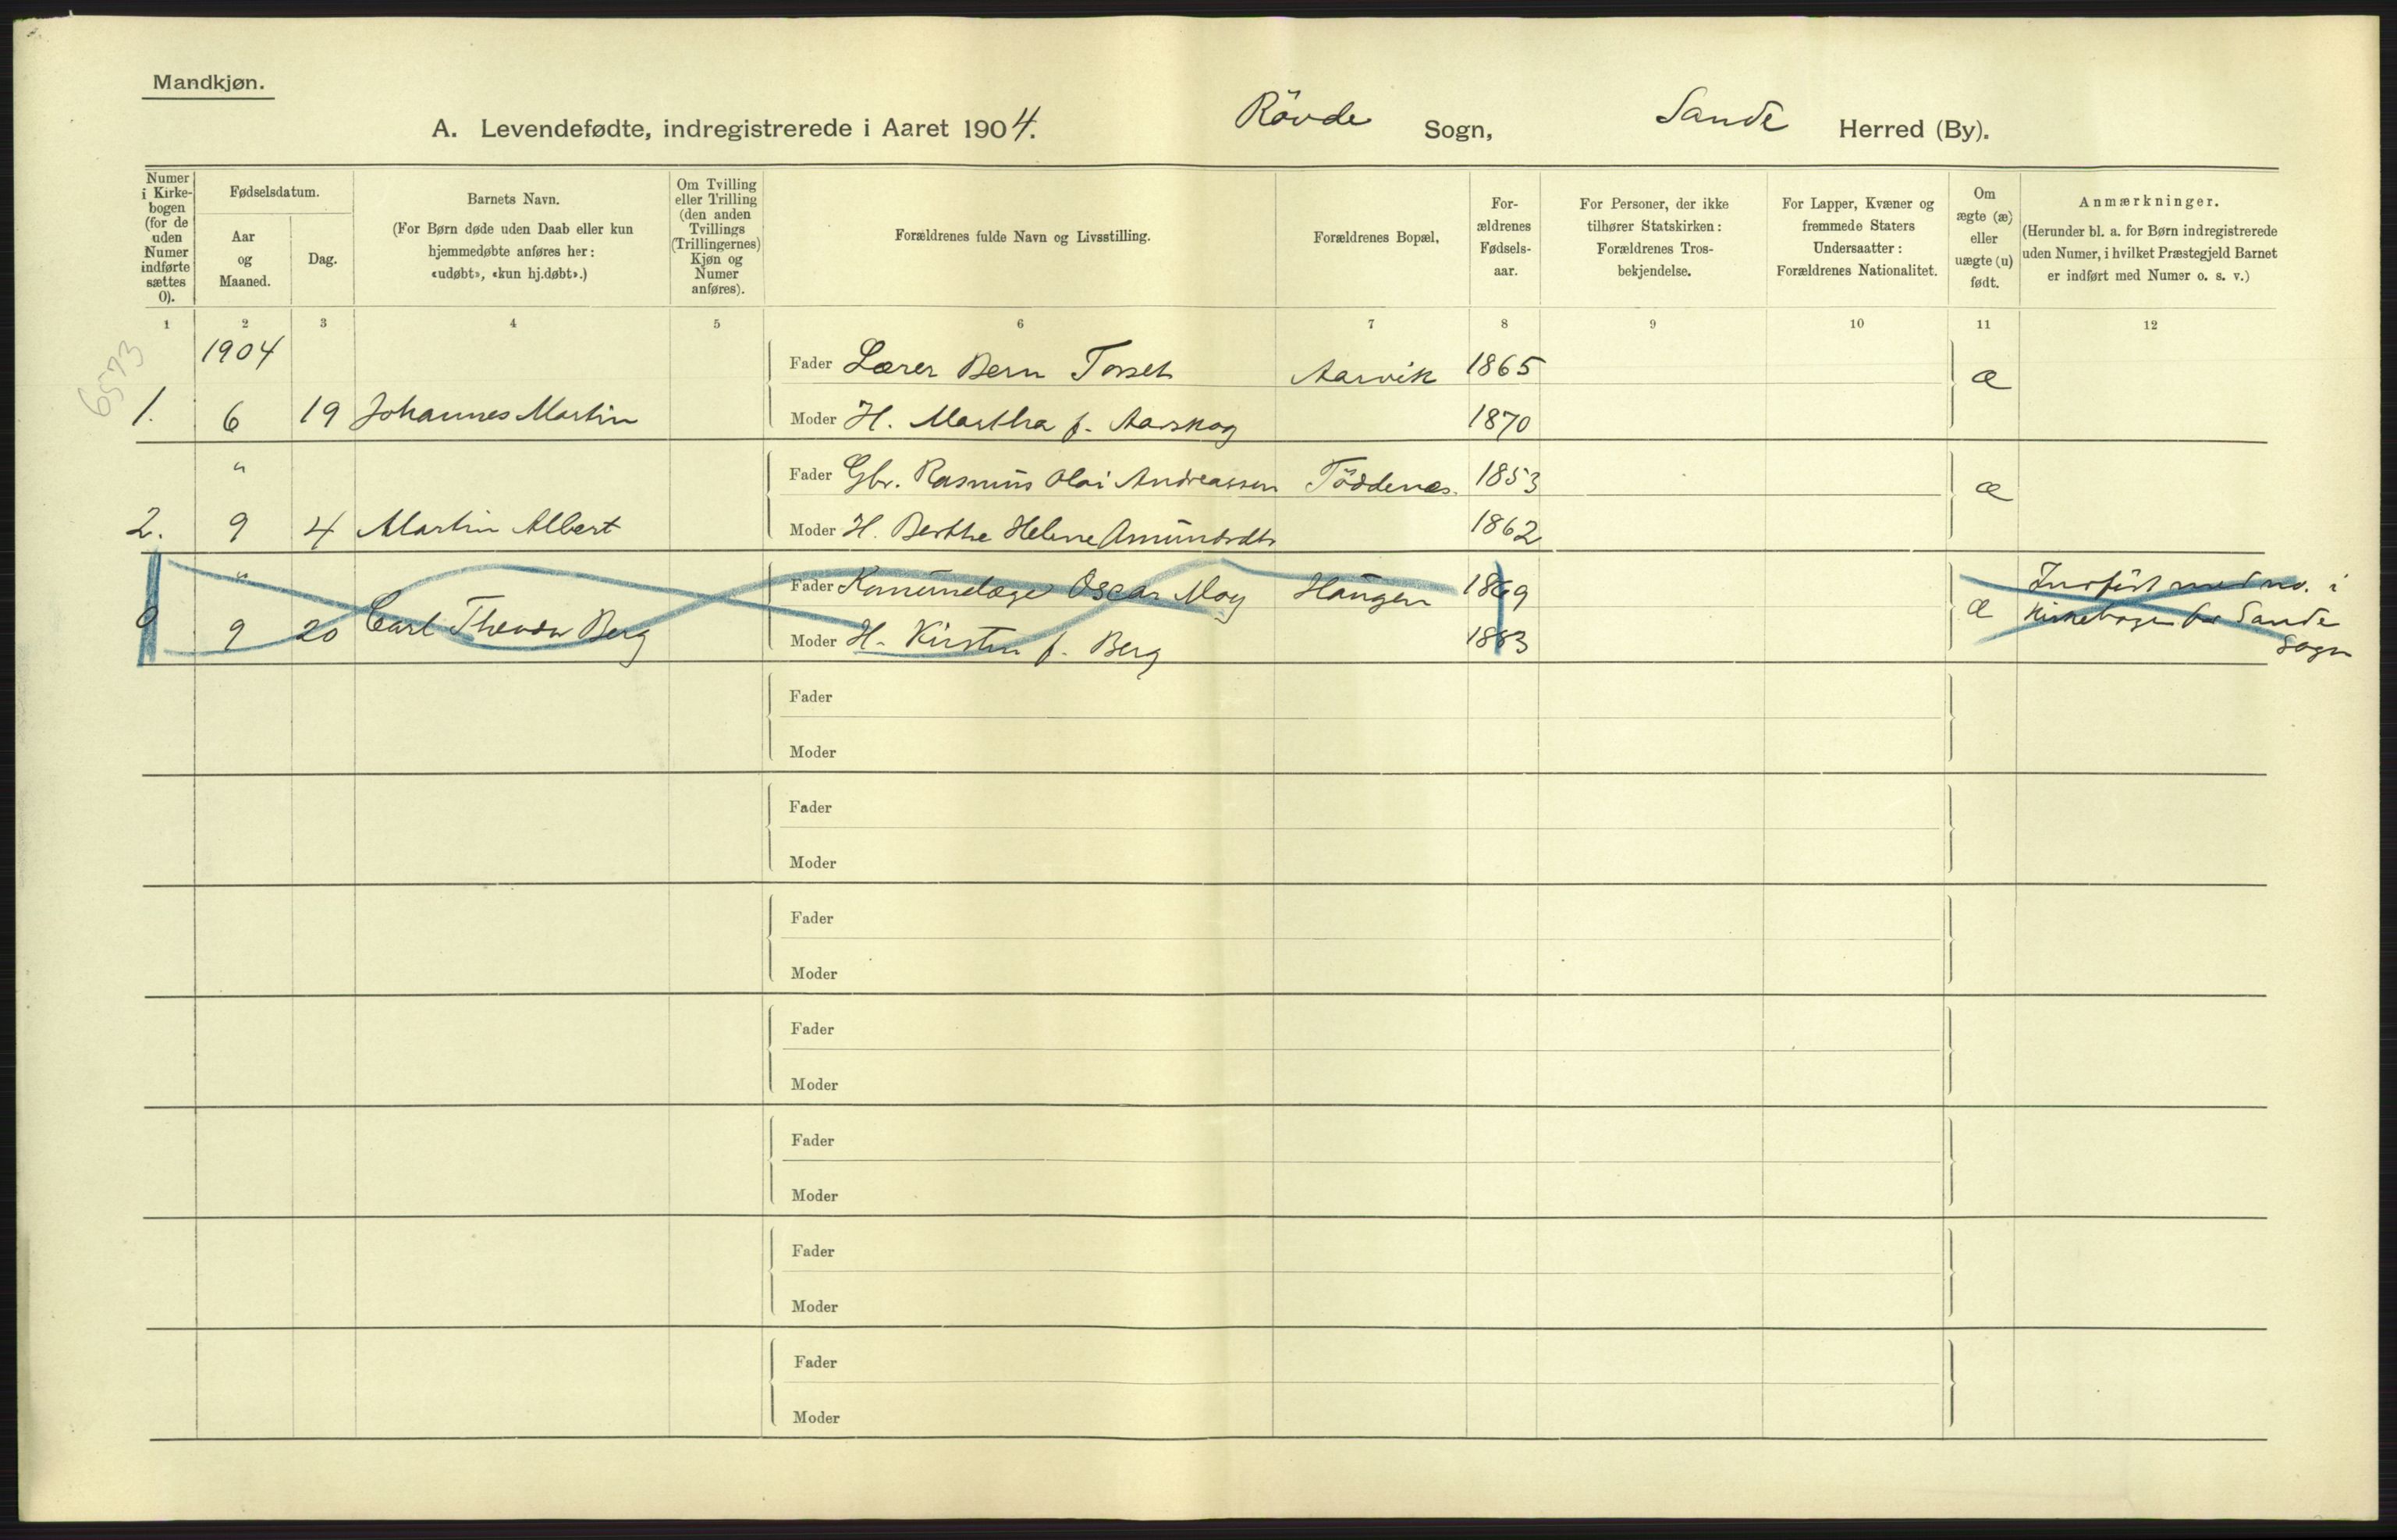 Mandkjøn.
A. Levendefødte, indregistrerede i Aaret 1904. Rövde Sogn, Sande Herred (By).
Numer i Kirkebogen (for de uden Numer indførte sættes 0).
Fødselsdatum.
Aar og Maaned.
Dag.
Barnets Navn.
(For Børn døde uden Daab eller kun hjemmedøbte anføres her: «udøbt», «kun hj.døbt».)
Om Tvilling eller Trilling (den anden Tvillings (Trillingernes) Kjøn og Numer anføres).
Forældrenes fulde Navn og Livsstilling.
Forældrenes Bopæl.
Forældrenes Fødselsaar.
For Personer, der ikke tilhører Statskirken: Forældrenes Trosbekjendelse.
For Lapper, Kvæner og fremmede Staters Undersaatter: Forældrenes Nationalitet.
Om ægte (æ) eller uægte (u) født.
Anmærkninger.
(Herunder bl. a. for Børn indregistrerede uden Numer, i hvilket Præstegjeld Barnet er indført med Numer o. s. v.)
1 2 3 4 5 6 7 8 9 10 11 12
6573
1904
Fader Lærer Bern Tosset Aarvik 1865 æ
1. 6 19 Johannes Martin Moder H. Martha f. Aarskog 1870
" Fader Gbr. Rasmus Olai Andreassen Töddenes. 1853 æ
2. 9 4 Martin Albert Moder H. Berthe Helene Amundsdtr 1862
" Fader Komunelæge Oscar Moy Haugen 1869 æ Indført med no. i
0 9 20 Carl Theodor Berg Moder H. Kirsten f. Berg 1883 Kirkebogen for Sande
Sogn
Fader
Moder
Fader
Moder
Fader
Moder
Fader
Moder
Fader
Moder
Fader
Moder
Fader
Moder